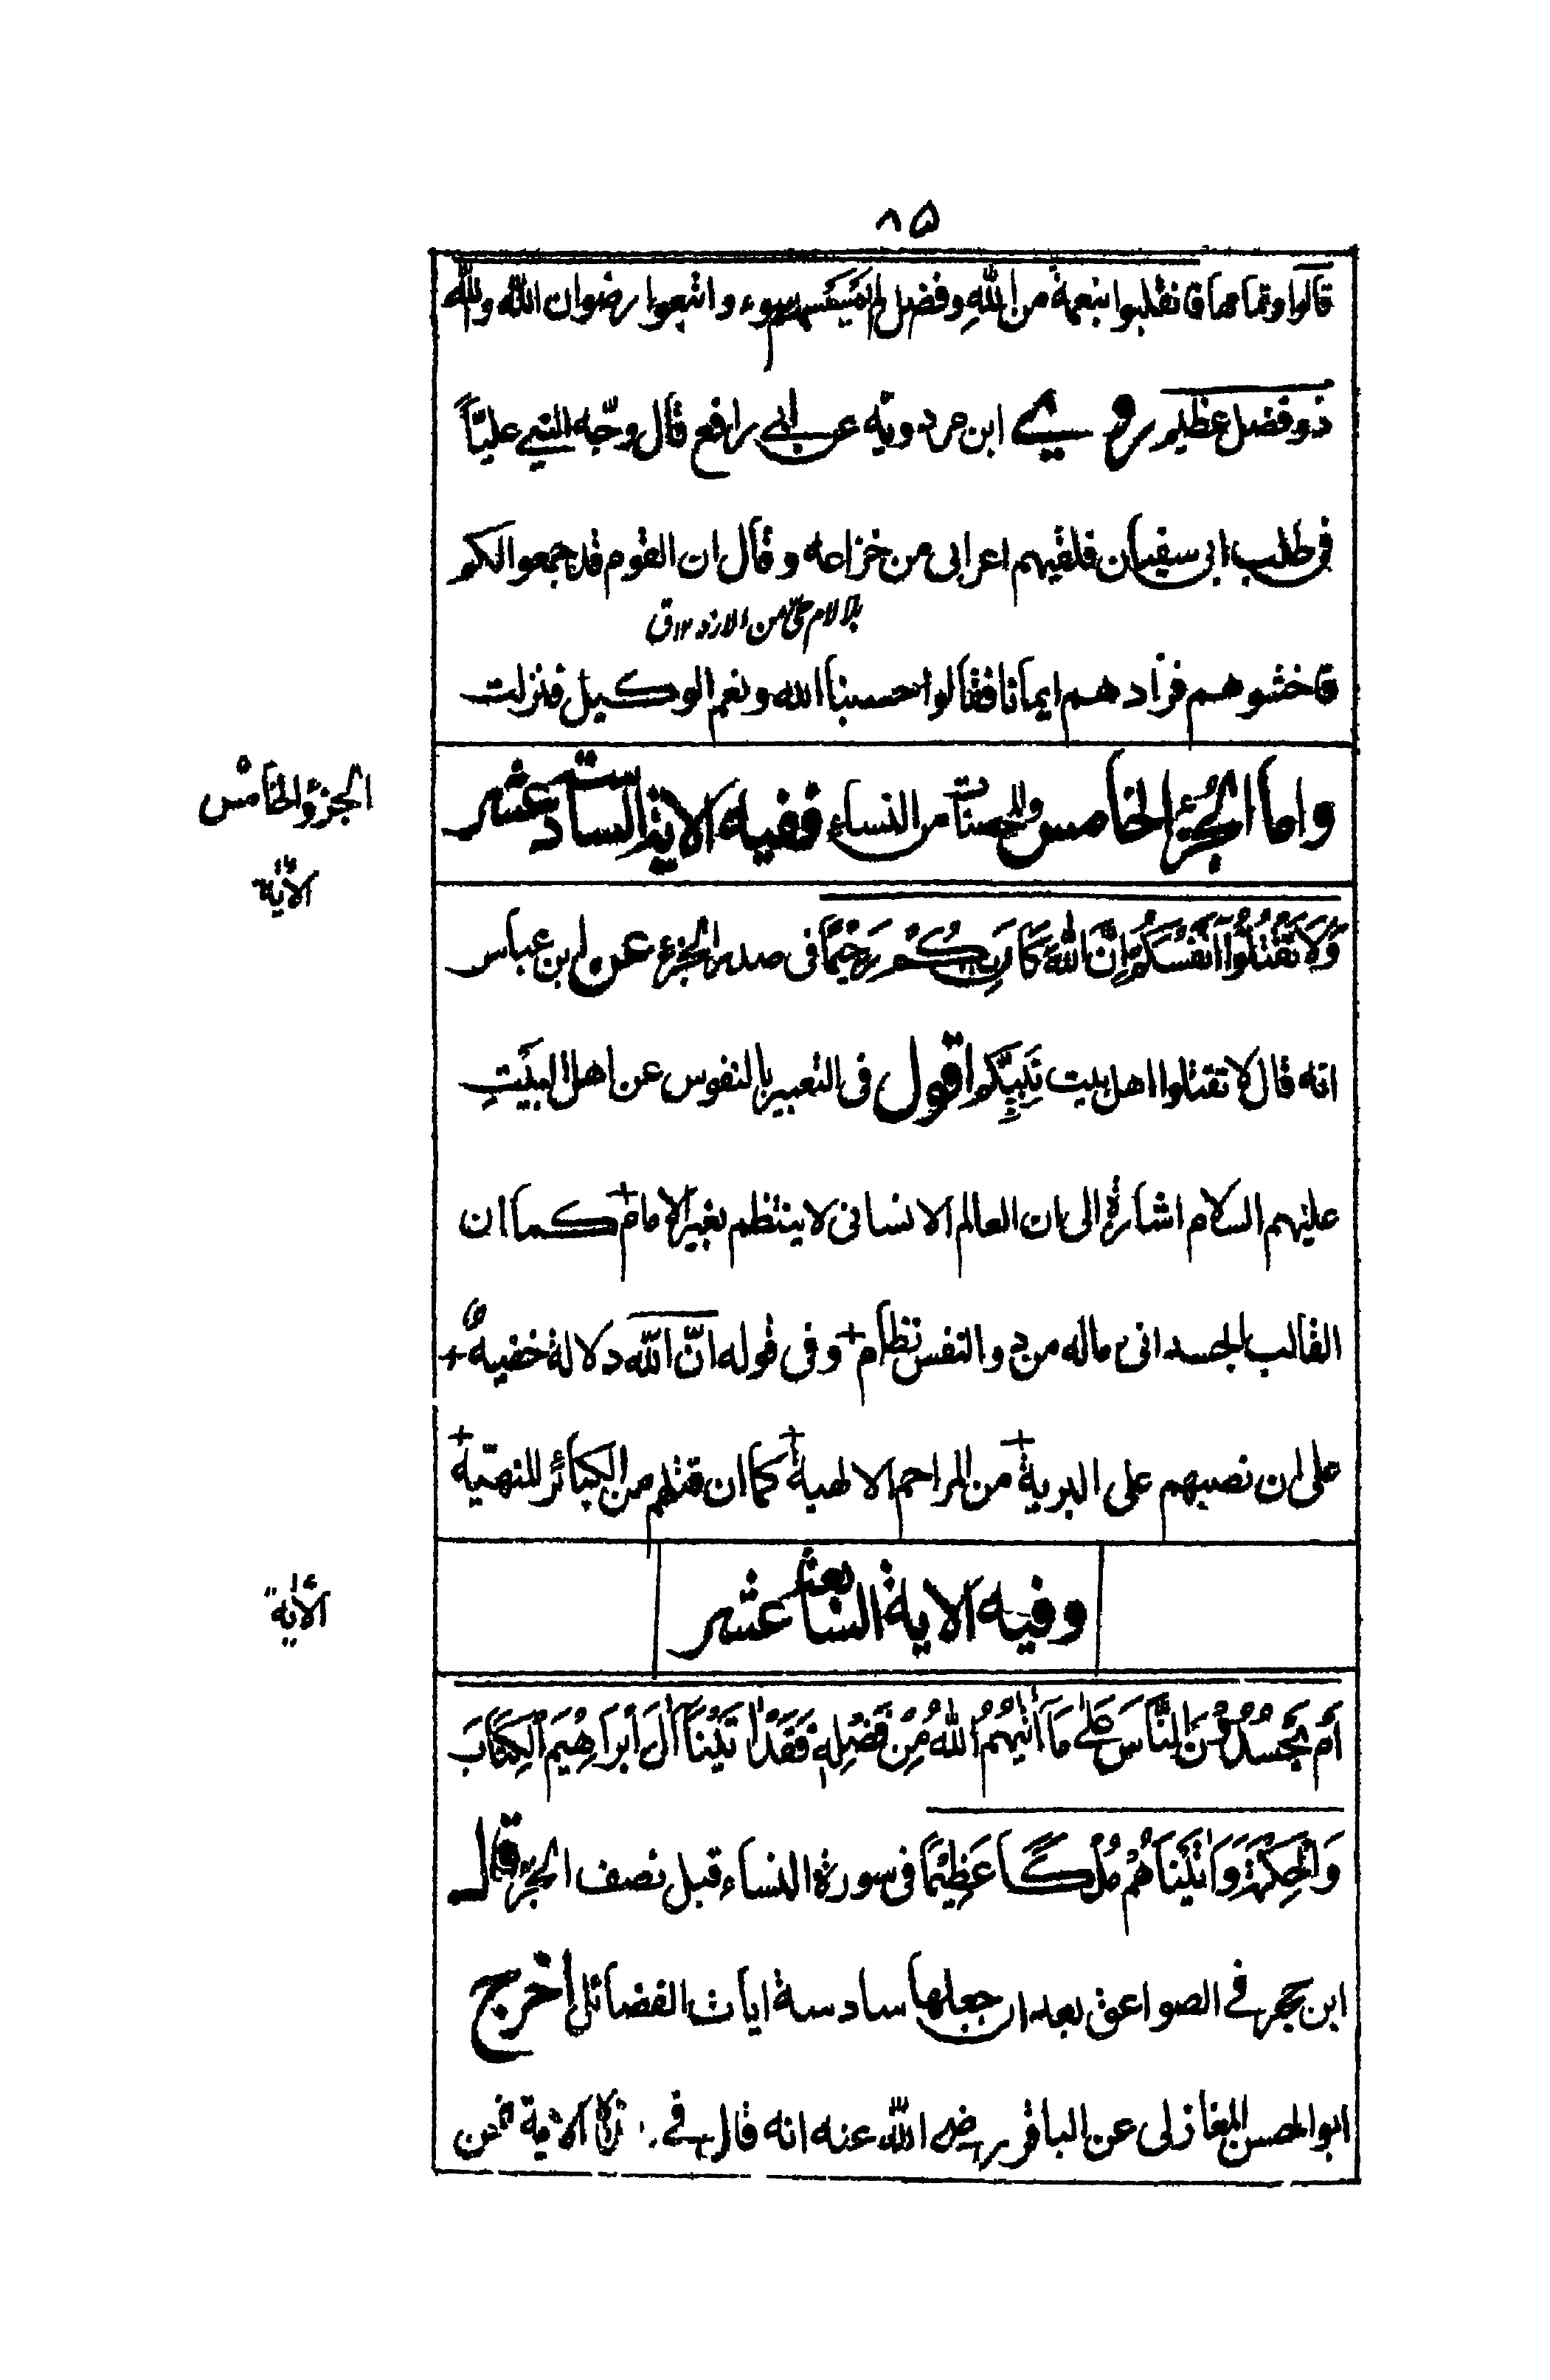 ٨۵
قالوا وتمامها فانقلبوا بنعمة من اللهِ وفضل لم يمسسهم سوء واتبعوا رضوان الله والله
ذو فضل عظيم روى ابن مردويّه عن ابى رافع قال وجّه النبى عليّاً
فى طلب ابى سفيان فلقيهم اعرابى من خزاعه وقال ان القوم قد جمعوا لكم
حىّ من الازد ١٢ ق
فاخشوهم فزادهم ايمانا فقالوا حسبنا الله ونعم الوكيل فنزلت
واما الجزء الخامس والمحصنات من النساء ففيه الاية السادسة عشر
الجزؤ الخامس
الأية ١٦
وَلَا تَقْتُلُوْا اَنْفُسَكُمْ اِنَّ اللهَ كَانَ بِكُمْ رَحِيْمًا فى صدر الجزء عن ابن عباس
انه قال لا تقتلوا اهل بيت نَبِيِّكم اقول فى التعبير بالنفوس عن اهل البَيْتِ
عليهم السلام اشارة الى ان العالم الانسانى لا ينتظم بغير الامام + كما ان
القالب الجسدانى ماله من دون النفس نظام + وفى قوله انّ الله دلالة خفيه +
على ان نصبهم على البرية + من المراحم الالهية + كما ان قتلهم من الكبائر المنهيّة +
وفيه الاية السابعة عشر
الأية ١٧
اَمْ يَحْسُدُوْنَ النَّاسَ عَلٰى مَا اٰتٰيهُمُ اللهُ مِنْ فَضْلِهٖ فَقَدْ اٰتَيْنَا اٰلَ اِبْرَاهِيْمَ الْكِتَابَ
وَالْحِكْمَةَ وَاٰتَيْنَاهُمْ مُلْكًا عَظِيْمًا فى سورة النساء قبل نصف الجزء قال
ابن حجر فى الصواعق بعد ان جعلها سادسة ايات الفضائل اخرج
ابو الحسن المغازلى عن الباقر رضى الله عنه انه قال فى هذه الاية نحن